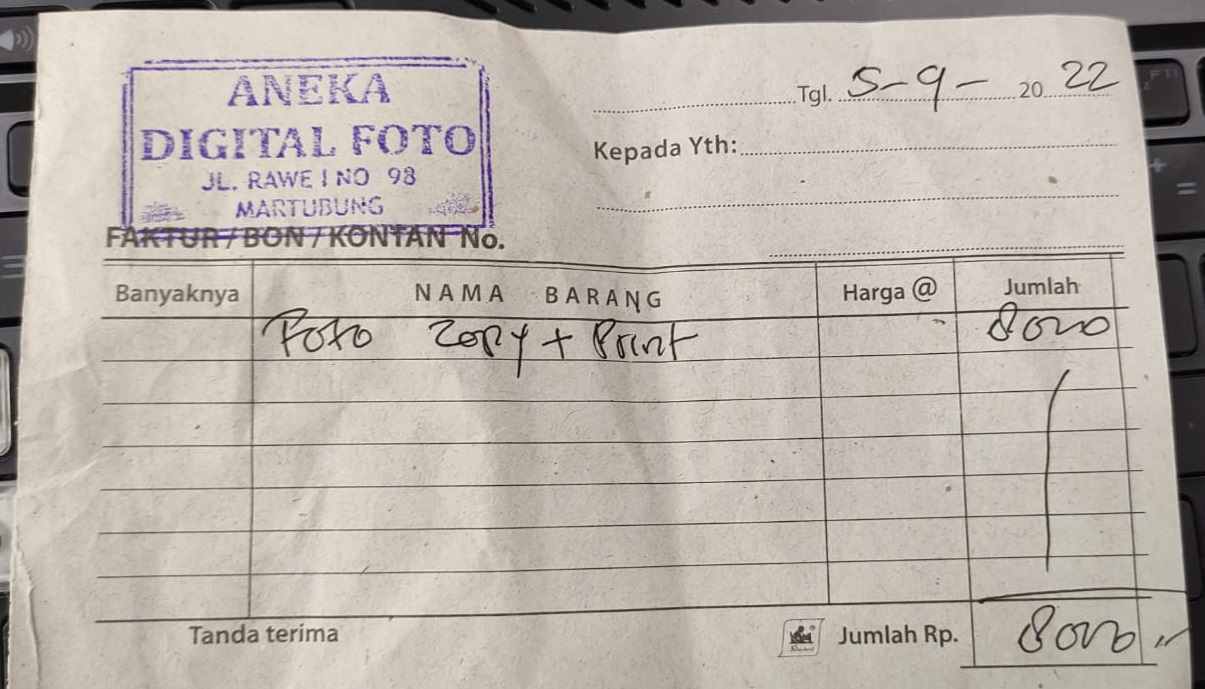 ANEKA
DIGITAL FOTO
JL. RAWE I NO 98
MARTUBUNG
Tgl. 5-9- 2022
Kepada Yth:
FAKTUR / BON / KONTAN No.
Banyaknya NAMA BARANG Harga @ Jumlah
Foto Copy + Print 8000
Tanda terima Jumlah Rp. 8000,-